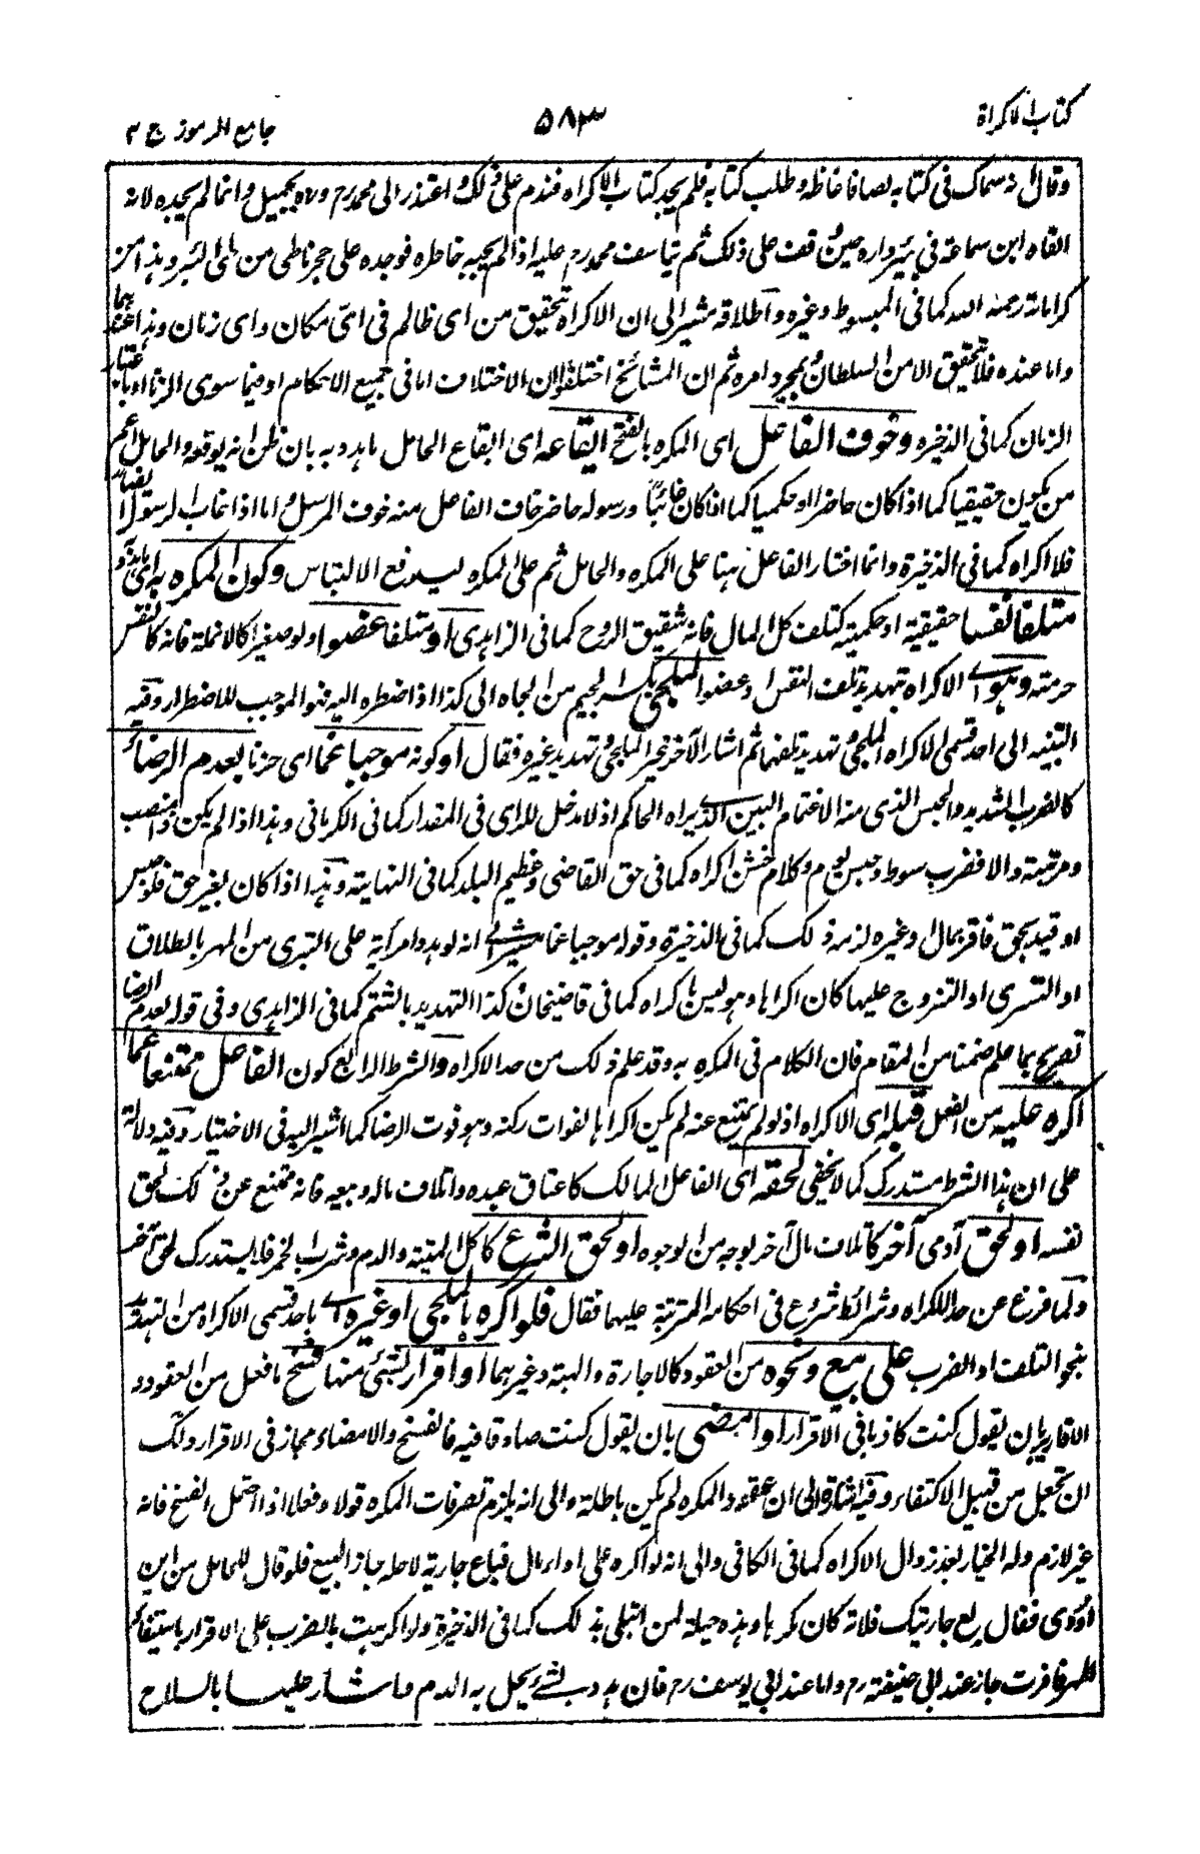 كتاب الاكراه ٥٨٣ جامع الرموز ج ٢
وقال في كتابه لصافا غاظه وطلب كتابه فلم يجد كتاب الاكراه فندم على ذلك واعتذر الى محمد رح وانما لم يجده لانه
القاه ابن سماعة في بير داره حين وقف على ذلك ثم تاسف محمد رح عليه اذا لم يجبه خاطره فوجده على حجر ناطى من طى البير وهذا من
كراماته رحمه الله كما في المبسوط وغيره واطلاقه مشير الى ان الاكراه تحقيق من اى ظالم في اى مكان واى زمان وهذا عندهما
واما عنده فلا تحقيق الا من السلطان بمجرد امره ثم ان المشائخ اختلفوا ان الاختلاف اما في جميع الاحكام او فيما سوى الزنا او باعتبار
الزمان كما في الذخيره وخوف الفاعل اى المكره بالفتح ايقاعه اى ايقاع الحامل ما هدد به بان ظن انه يوقعه والحامل اعم
من يكون حقيقيا كما اذا كان حاضرا او حكميا كما اذا كان غائبا ورسوله حاضر خاف الفاعل منه خوف المرسل اما اذا غاب الرسول ايضا
فلا اكراه كما في الذخيرة وانما اختار الفاعل هنا على المكره والحامل ثم على المكره ليدفع الالتباس وكون المكره به اى ما هدد به
متلفا نفسا حقيقية او حكمية كتلف كل المال فانه شقيق الروح كما في الزاهدى او متلفا عضوا ولو صغيرا كالانملة فانه كالنفس
حرمته وهو اى الاكراه تهديد تلف النفس او عضو الملجى بكسر الجيم من الجاه الى كذا اذا اضطره اليه فهو الموجب للاضطرار وفيه
التنبيه الى احد قسمى الاكراه الملجئ تهديد تلفهما ثم اشار الآخر غير الملجئ تهديد غيره فقال او كونه موجبا غما اى حزنا بعدم الرضاء
كالضرب الشديد والحبس الذى منه الاغتمام البين الذى يراه الحاكم اذ لا مدخل للراى في المقدار كما في الكرمانى وهذا اذا لم يكن ذا منصب
ومرتبة والا فضرب سوط وحبس يوم وكلام خشن اكراه كما في حق القاضى وعظيم البلد كما في النهاية وهذا اذا كان بغير حق فلو حبس
او قيد بحق فاقر بمال وغيره لزمه ذلك كما في الذخيرة وقوله موجبا غما مشير الى انه لو هدد امرأته على التبرى من المهر بالطلاق
او التسرى او التزوج عليها كان اكراها وهو ليس باكراه كما في قاضيخان كذا التهديد بالشتم كما في الزاهدى وفي قوله بعدم الرضا
تصريح بما علم ضمنا من المقام فان الكلام في المكره به وقد علم ذلك من حد الاكراه والشرط الرابع كون الفاعل ممتنعا عما
اكره عليه من الفعل قبله اى الاكراه اذ لو لم يمتنع عنه لم يكن اكراها لفوات ركنه وهو فوت الرضا كما اشير اليه في الاختيار وفيه دلالة
على ان هذا الشرط مستدرك كما لا يخفى لحقه اى الفاعل المالك كاعتاق عبده واتلاف ماله وبيعه فانه ممتنع عن ذلك لحق
نفسه او لحق آدمى آخر كاتلاف مال آخر بوجه من الوجوه او لحق الشرع كاكل الميتة والدم وشرب الخمر فلا يستدرك لحق آخر
ولما فرغ عن حد للكراه وشرائط شرع في احكامه المترتبة عليها فقال فلو اكره بالملجى او غيره اى باحد قسمى الاكراه من التهديد
بنحو التلف او الضرب على بيع ونحوه من العقود كالاجارة والهبة وغيرهما او اقرار لشئ منها فسخ ما فعل من العقود و
الاقارير بان يقول كنت كاذبا في الاقرار او امضى بان يقول كنت صادقا فيه فالفسخ والامضاء مجاز في الاقرار ولك
ان تجعل من قبيل الاكتفاء وفيه اشارة الى ان عقود المكره لم يكن باطلة والى انه يلزم تصرفات المكره قولا وفعلا اذا احتمل الفسخ فانه
غير لازم وله الخيار بعد زوال الاكراه كما في الكافى والى انه لو اكره على اداء مال فباع جارية لاجله جاز البيع فلو قال للحامل من اين
اؤدى فقال بع جاريتك فلانة كان مكرها وهذه حيلة لمن ابتلى بذلك كما في الذخيرة ولو اكرهت بالضرب على الاقرار باستيفاء
المهر فاقرت جاز عند ابى حنيفة رح واما عند ابى يوسف رح فان هدد بشئ يحل به الدم فاشار عليها بالسلاح